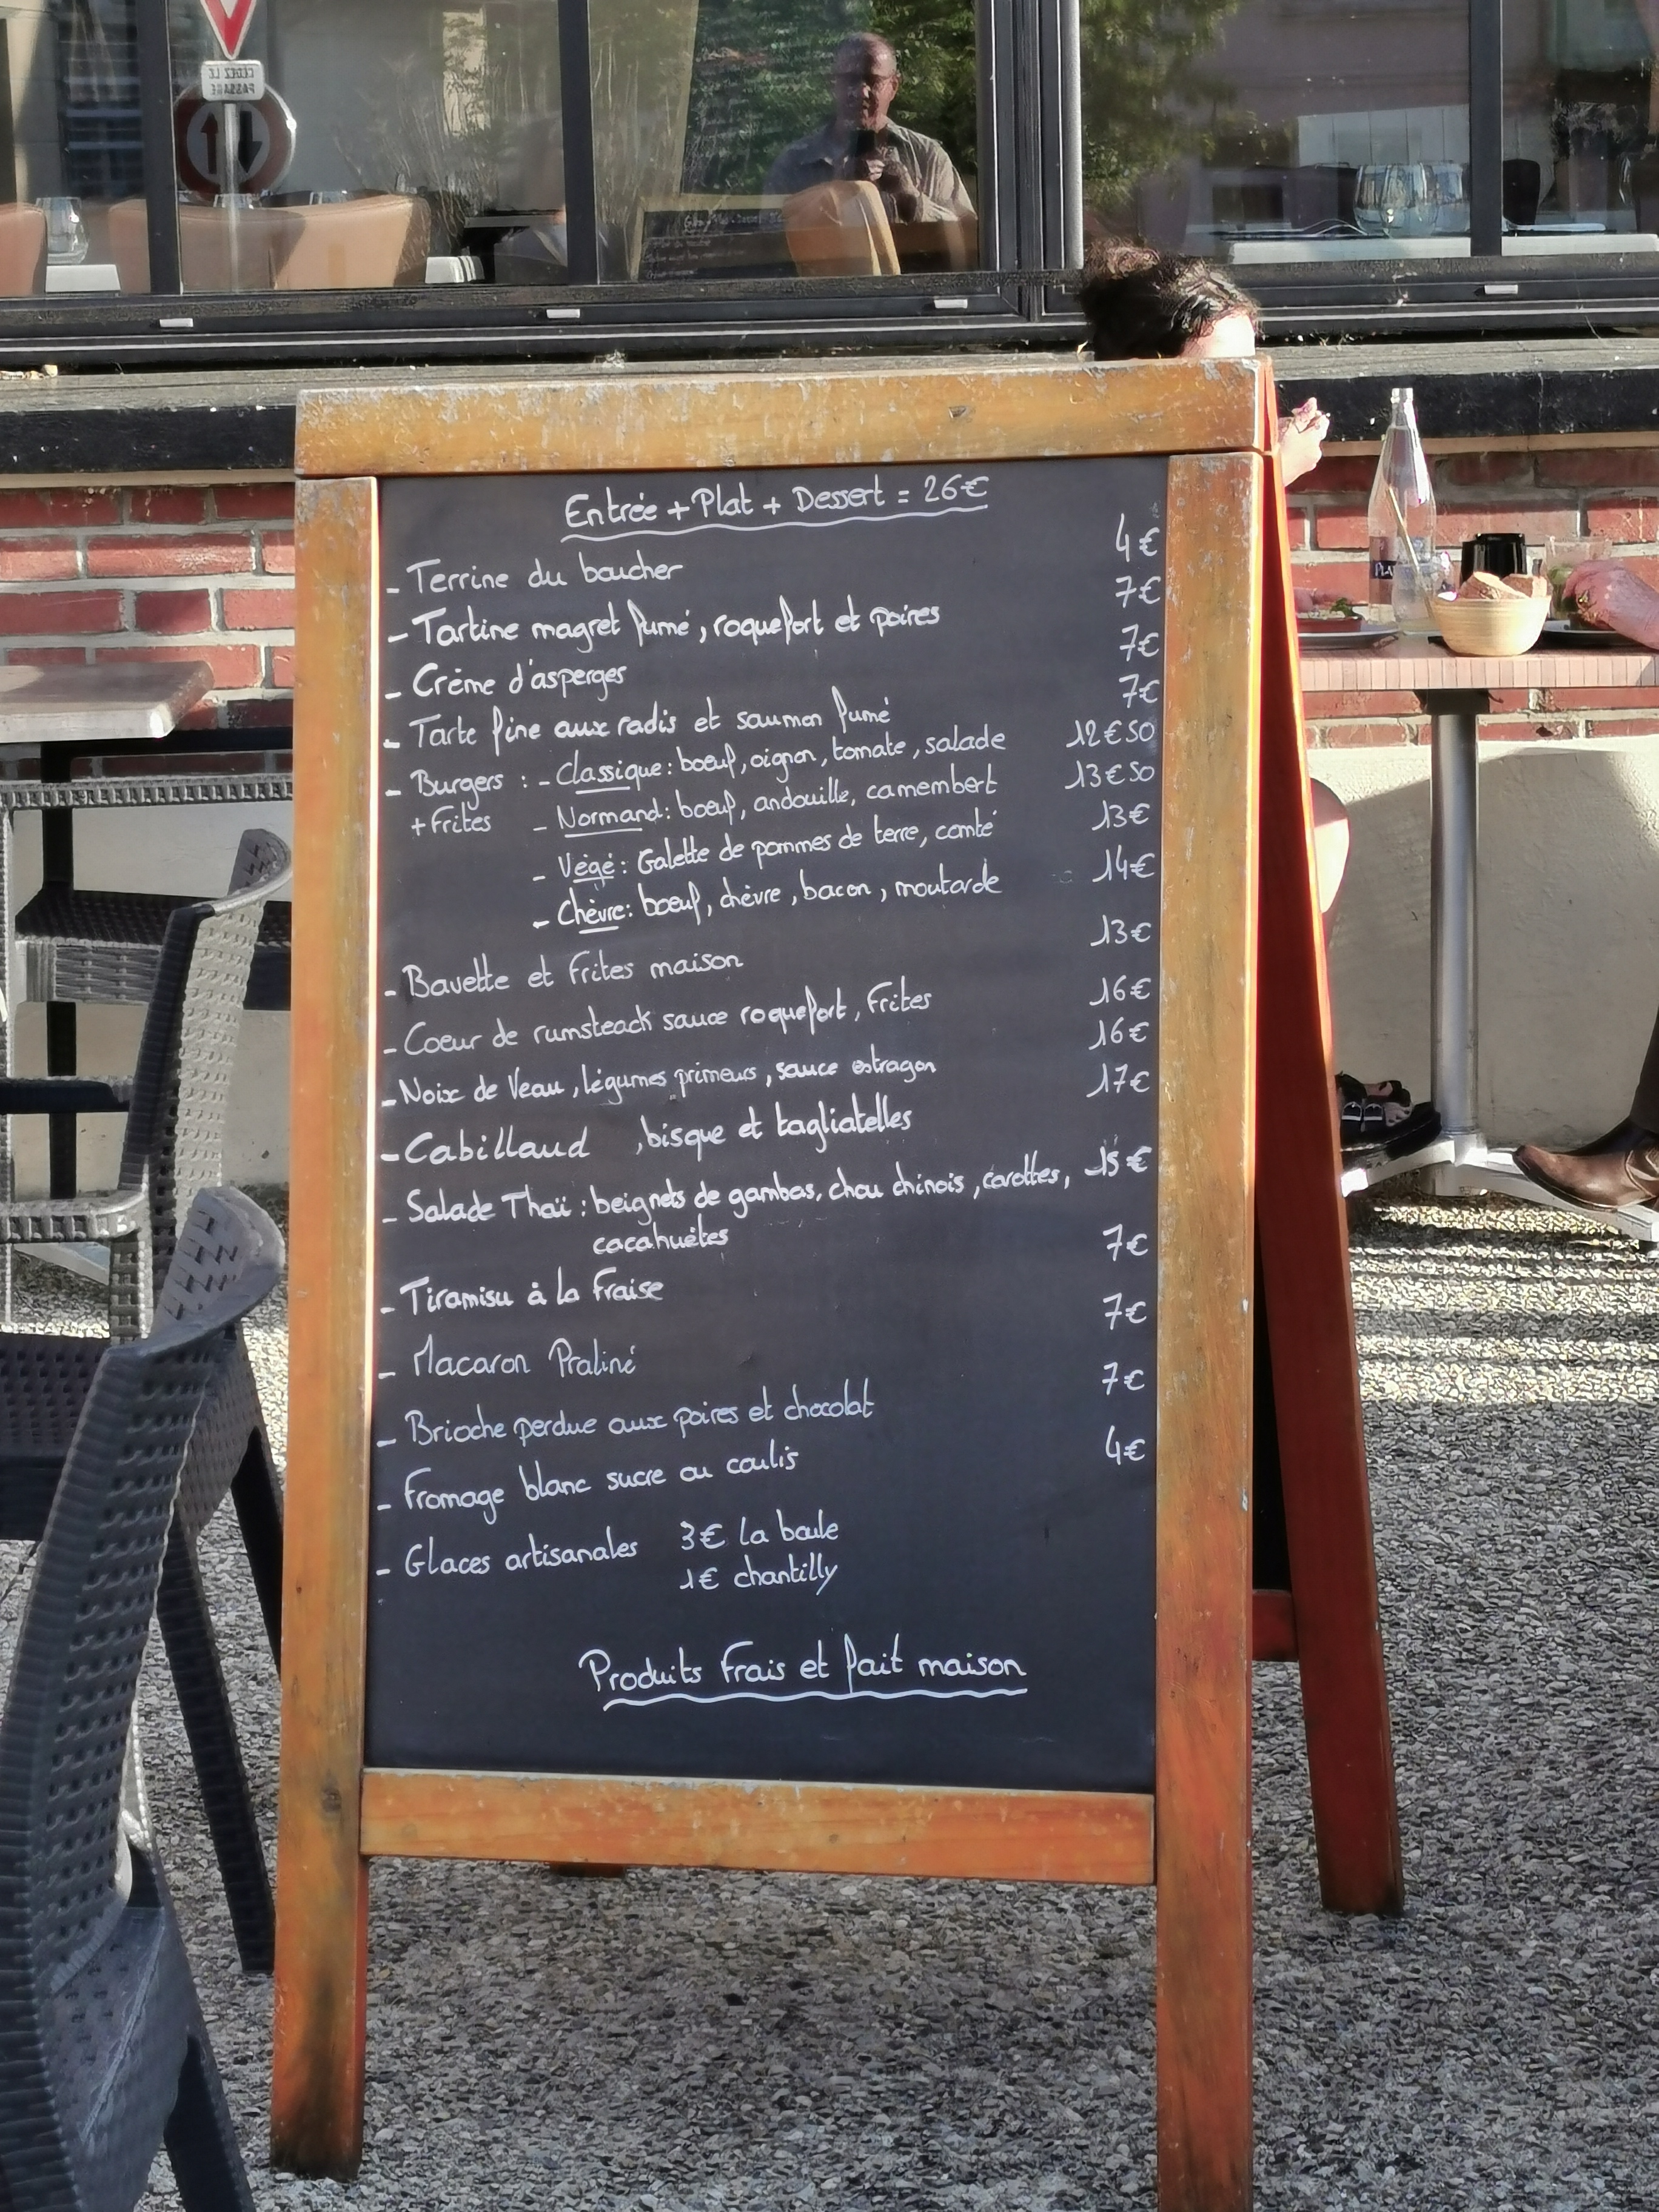 CEDEZ LE
PASSAGE
Entrée + Plat + Dessert = 26€
- Terrine du boucher 4€
- Tartine magret fumé, roquefort et poires 7€
- Crème d'asperges 7€
- Tarte fine aux radis et saumon fumé 7€
- Burgers : - Classique : boeuf, oignon, tomate, salade 12€50
+ Frites - Normand : boeuf, andouille, camembert 13€50
- Végé : Galette de pommes de terre, comté 13€
- Chèvre : boeuf, chèvre, bacon, moutarde 14€
- Bavette et frites maison 13€
- Coeur de rumsteack sauce roquefort, Frites 16€
- Noix de Veau, légumes primeurs, sauce estragon 16€
- Cabillaud , bisque et tagliatelles 17€
- Salade Thaï : beignets de gambas, chou chinois, carottes, 15€
cacahuètes
- Tiramisu à la Fraise 7€
- Macaron Praliné 7€
- Brioche perdue aux poires et chocolat 7€
- Fromage blanc sucre ou coulis 4€
- Glaces artisanales 3€ la boule
1€ chantilly
Produits Frais et fait maison